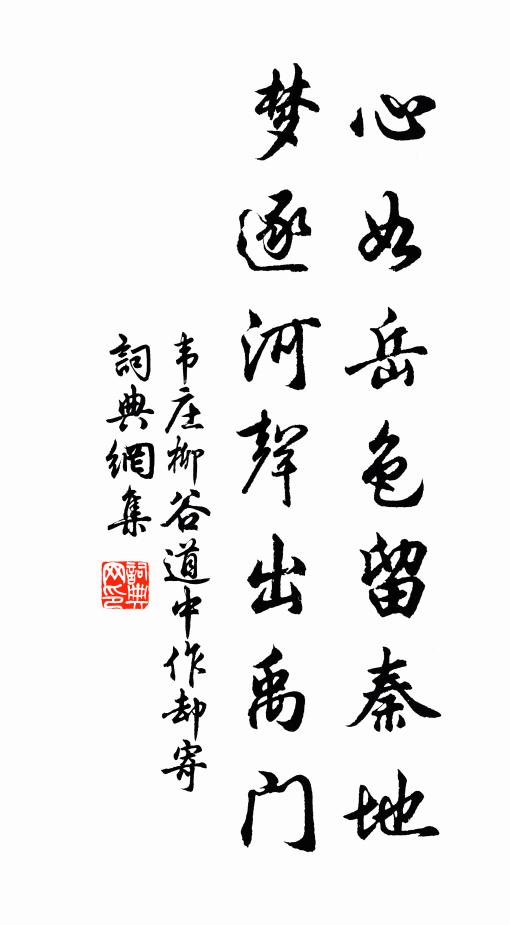 心如岳色留秦地
梦逐河聲出禹门
韦庄柳谷道中作却寄
詞典網集
詞典
网印